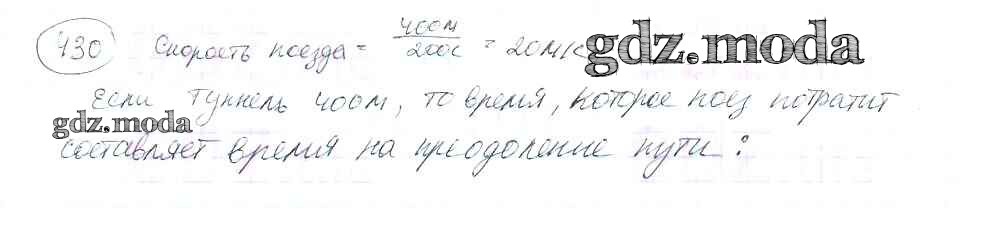 430 Скорость поезда = 400м / 200с = 20м/с gdz.moda
Если туннель 400м, то время, которое поез потратит
gdz.moda
составляет время на преодоление пути: